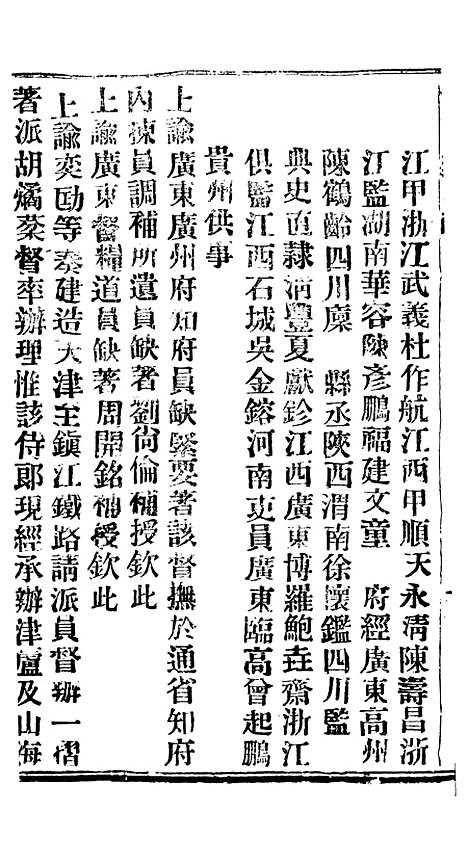 江甲浙江武義杜作航江西甲順天永淸陳壽昌浙
江監湖南華容陳彥鵬福建文童　府經廣東高州
陳鶴齡四川廩　縣丞陝西渭南徐懷鑑四川監
典史直隸淸豐夏獻鉁江西廣東博羅鮑垚齋浙江
供監江西石城吳金鎔河南吏員廣東臨高曾起鵬
貴州供事
上諭廣東廣州府知府員缺緊要著該督撫於通省知府
內揀員調補所遺員缺著劉尙倫補授欽此
上諭廣東督糧道員缺著周開銘補授欽此
上諭奕劻等奏建造天津至鎭江鐵路請派員督辦一摺
著派胡燏棻督率辦理惟該侍郎現經承辦津蘆及山海